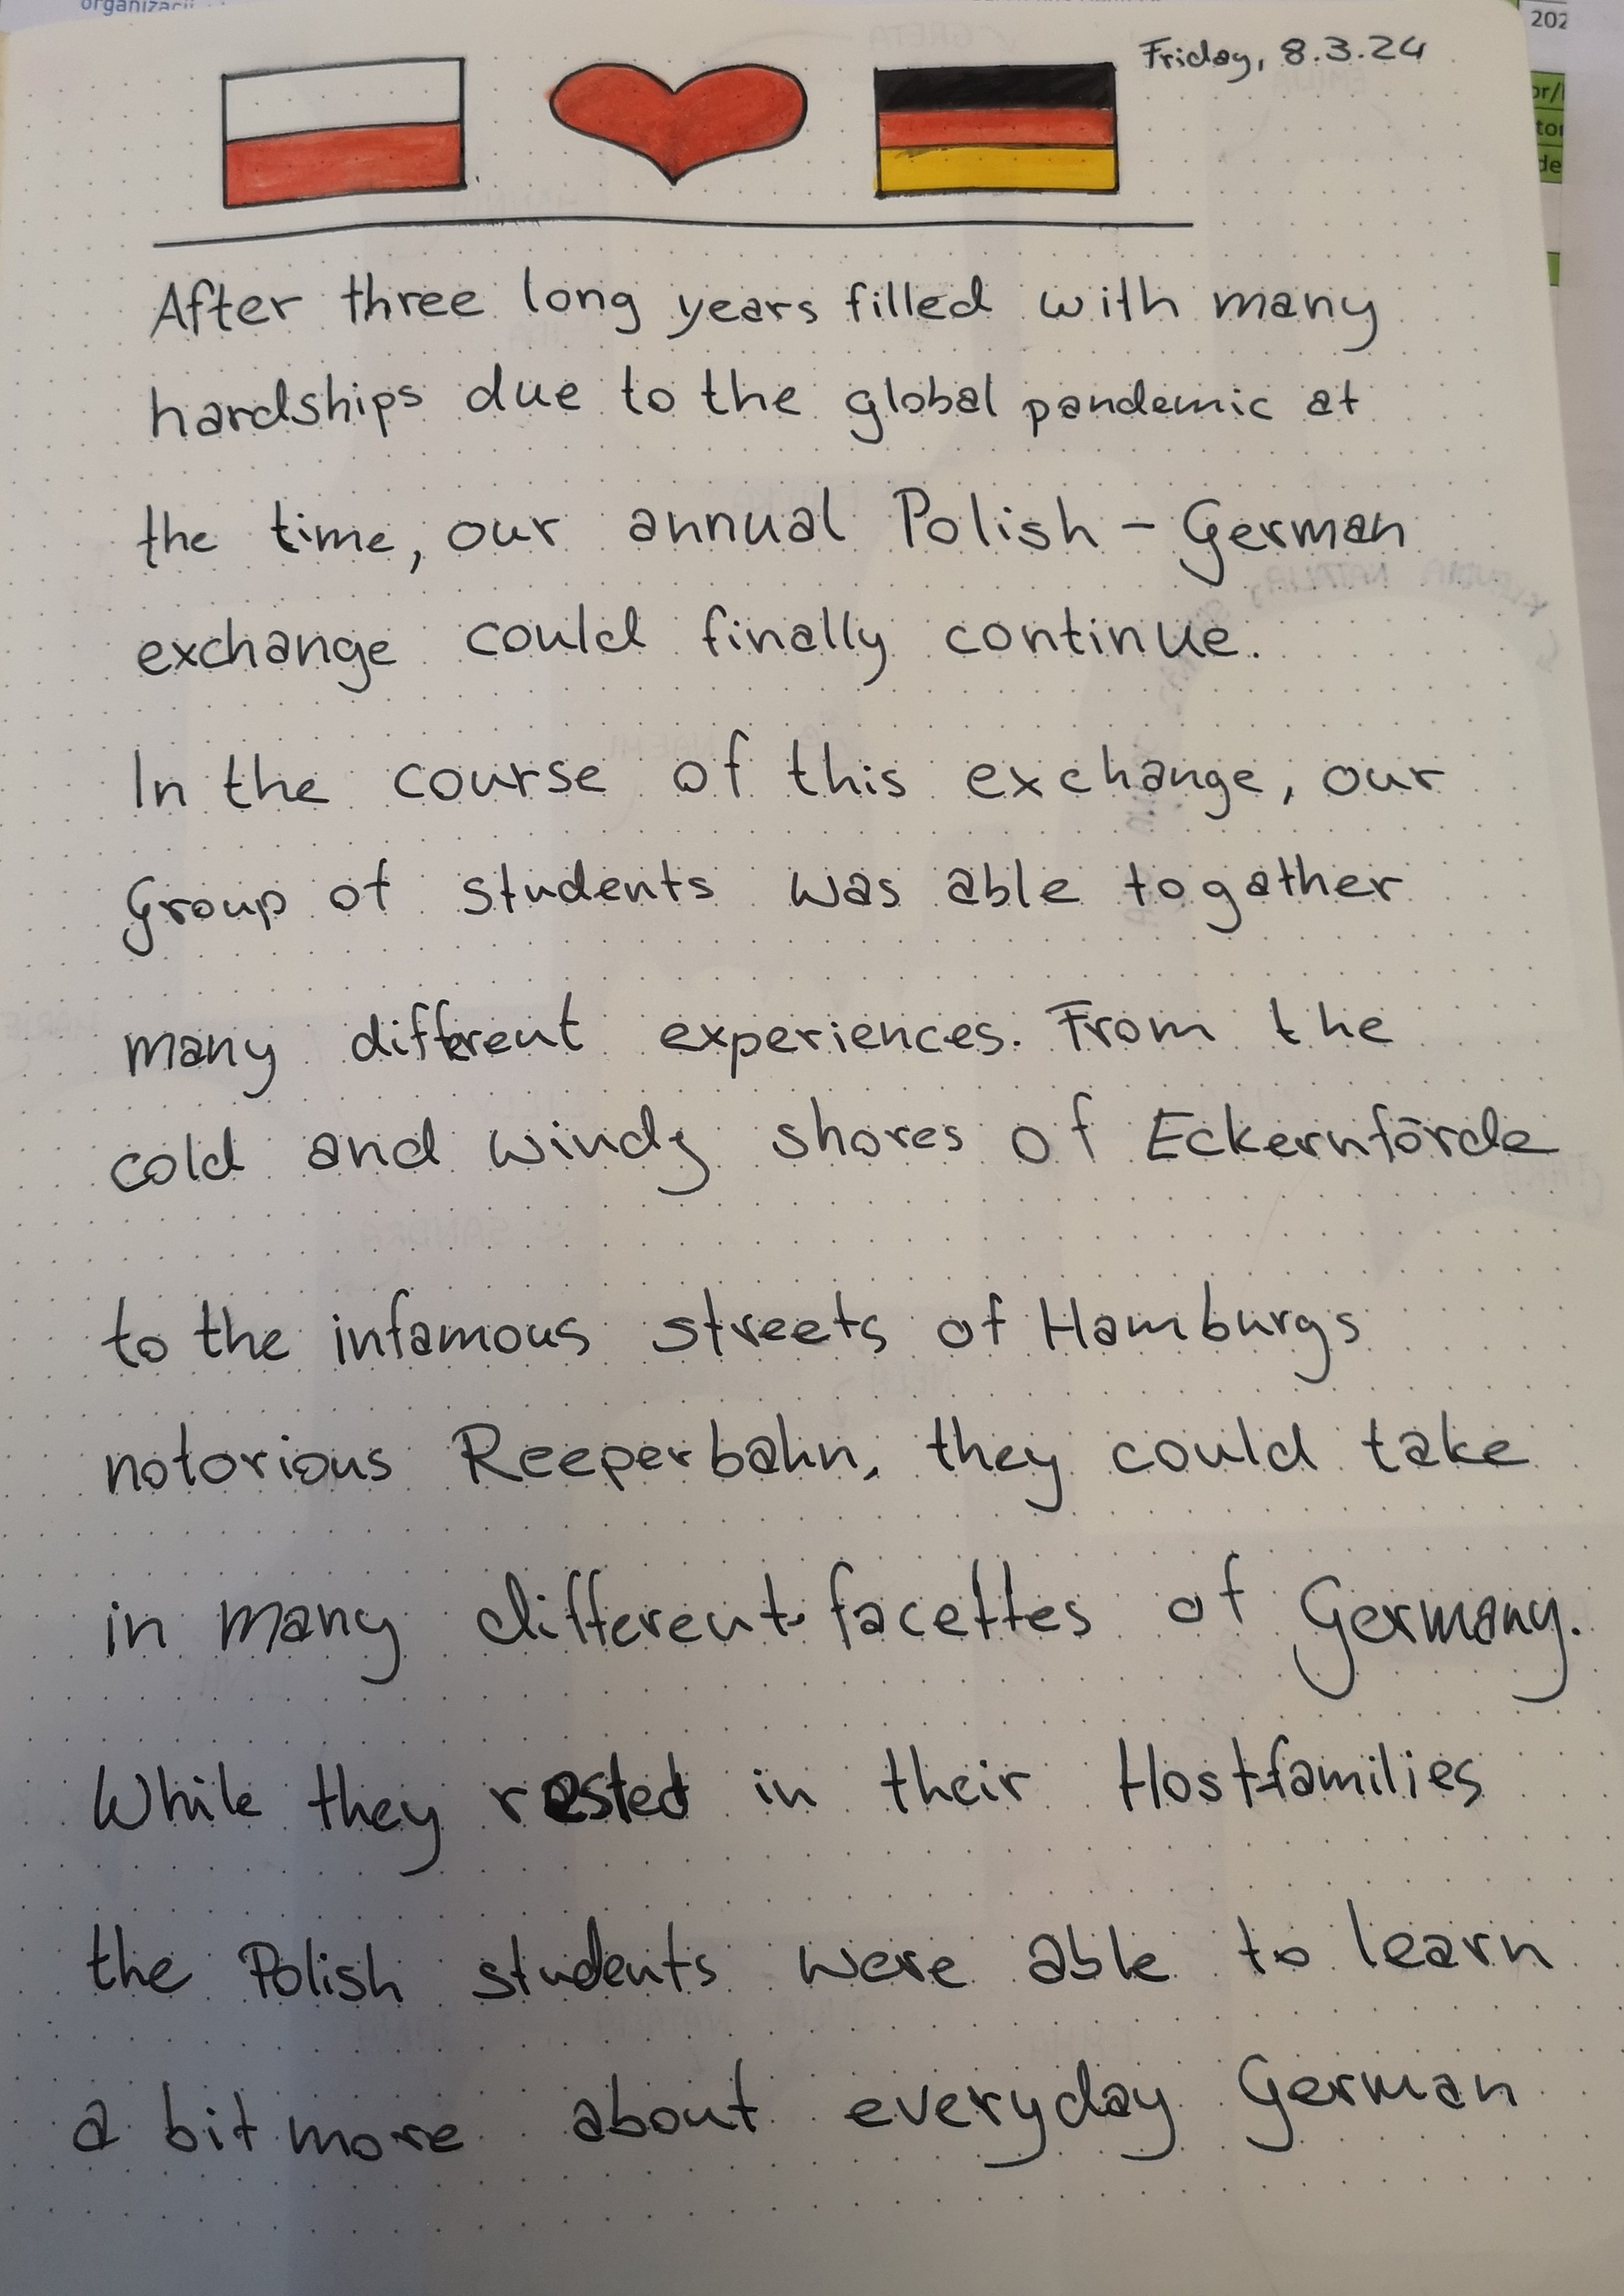 organizacji
202
Friday, 8.3.24
After three long years filled with many
hardships due to the global pandemic at
the time, our annual Polish - German
exchange could finally continue.
In the course of this exchange, our
Group of students was able to gather
many different experiences. From the
cold and windy shores of Eckernförde
to the infamous streets of Hamburgs
notorious Reeperbahn, they could take
in many different facettes of Germany.
While they rested in their Hostfamilies
the Polish students were able to learn
a bit more about everyday German